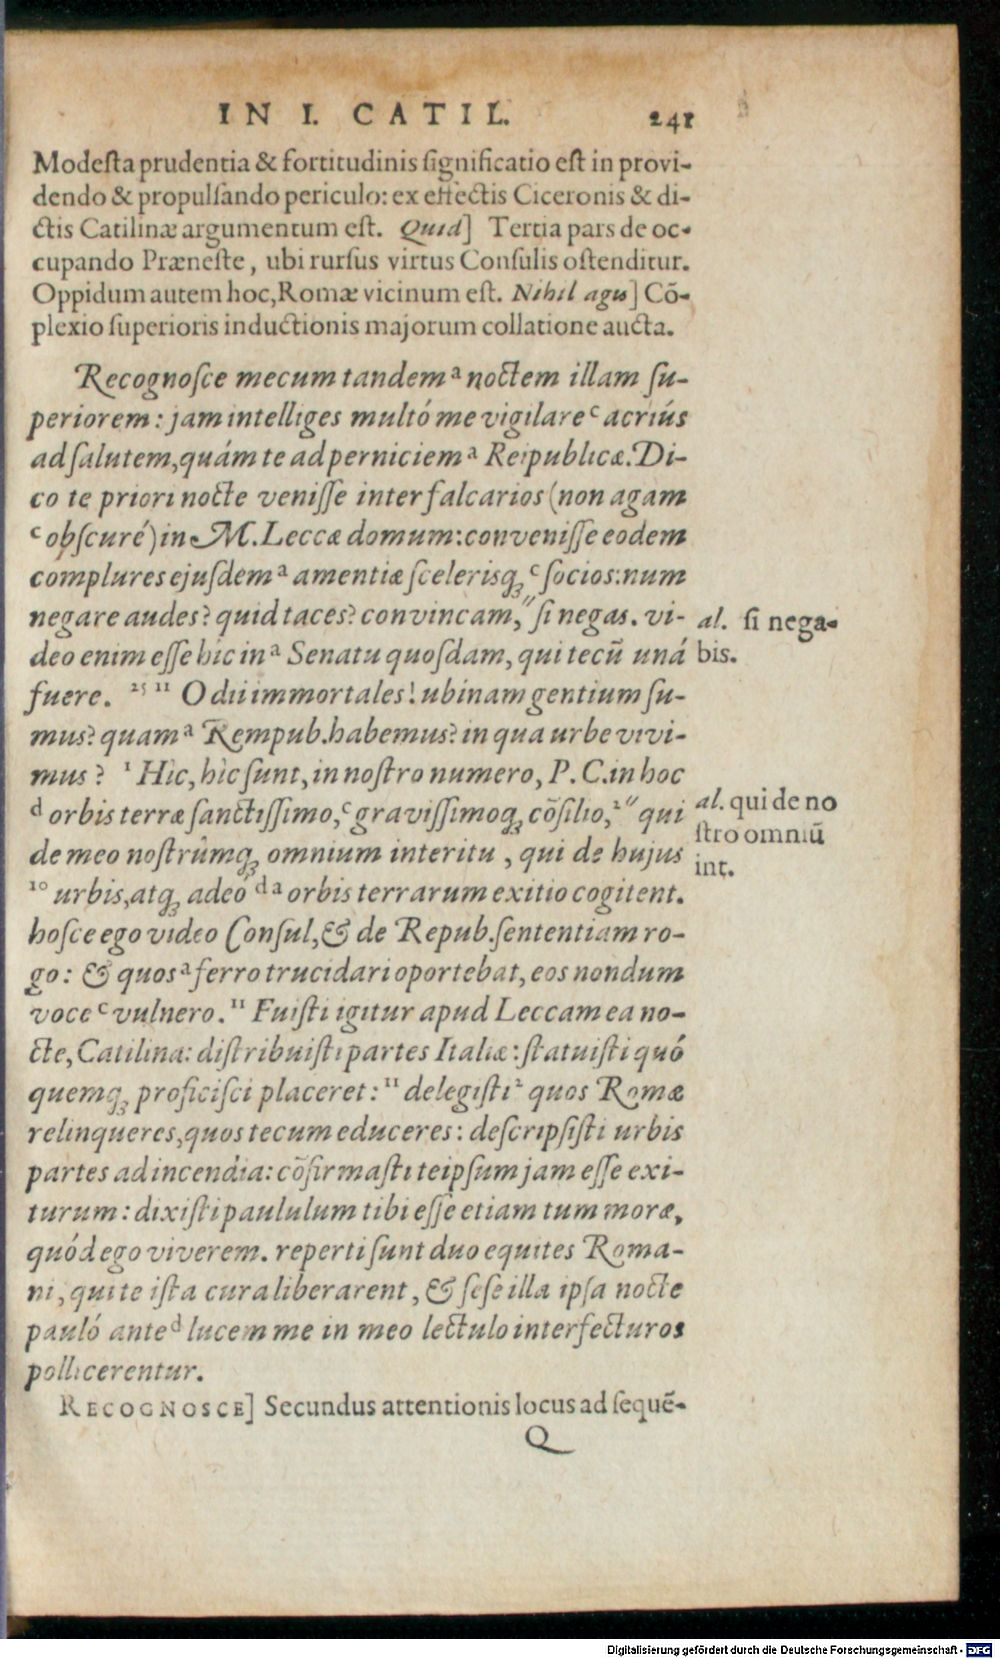 IN I. CATIL. 241
Modesta prudentia & fortitudinis significatio est in provi-
dendo & propulsando periculo: ex effectis Ciceronis & di-
ctis Catilinæ argumentum est. Quid] Tertia pars de oc-
cupando Præneste, ubi rursus virtus Consulis ostenditur.
Oppidum autem hoc, Romæ vicinum est. Nihil agis] Cō-
plexio superioris inductionis majorum collatione aucta.
Recognosce mecum tandem ª noctem illam su-
periorem: jam intelliges multó me vigilare ᶜ acriús
ad salutem, quám te ad perniciem ª Reipublicæ. Di-
co te priori nocte venisse inter falcarios (non agam
ᶜ obscuré) in M. Leccæ domum: convenisse eodem
complures ejusdem ª amentiæ scelerisq́ꝫ ᶜ socios: num
negare audes? quid taces? convincam, " si negas. vi-
deo enim esse hic in ª Senatu quosdam, qui tecū uná
fuere. ²⁵ ¹¹ O dii immortales! ubinam gentium su-
mus? quam ª Rempub. habemus? in qua urbe vivi-
mus? ¹ Hìc, hìc sunt, in nostro numero, P. C. in hoc
ᵈ orbis terræ sanctissimo, ᶜ gravissimoq́ꝫ cōsilio, ²" qui
de meo nostrûmq́ꝫ omnium interitu, qui de hujus
¹⁰ urbis, atq́ꝫ adeó ᵈ ª orbis terrarum exitio cogitent.
hosce ego video Consul, & de Repub. sententiam ro-
go: & quos ª ferro trucidari oportebat, eos nondum
voce ᶜ vulnero. ¹¹ Fuisti igitur apud Leccam ea no-
cte, Catilina: distribuisti partes Italiæ: statuisti quó
quemq́ꝫ proficisci placeret: ¹¹ delegisti ² quos Romæ
relinqueres, quos tecum educeres: descripsisti urbis
partes ad incendia: cōfirmasti teipsum jam esse exi-
turum: dixisti paululum tibi esse etiam tum moræ,
quód ego viverem. reperti sunt duo equites Roma-
ni, qui te ista cura liberarent, & sese illa ipsa nocte
pauló ante ᵈ lucem me in meo lectulo interfecturos
pollicerentur.
RECOGNOSCE] Secundus attentionis locus ad sequē-
Q
al. si nega-
bis.
al. qui de no
stro omniū
int.
Digitalisierung gefördert durch die Deutsche Forschungsgemeinschaft - DFG